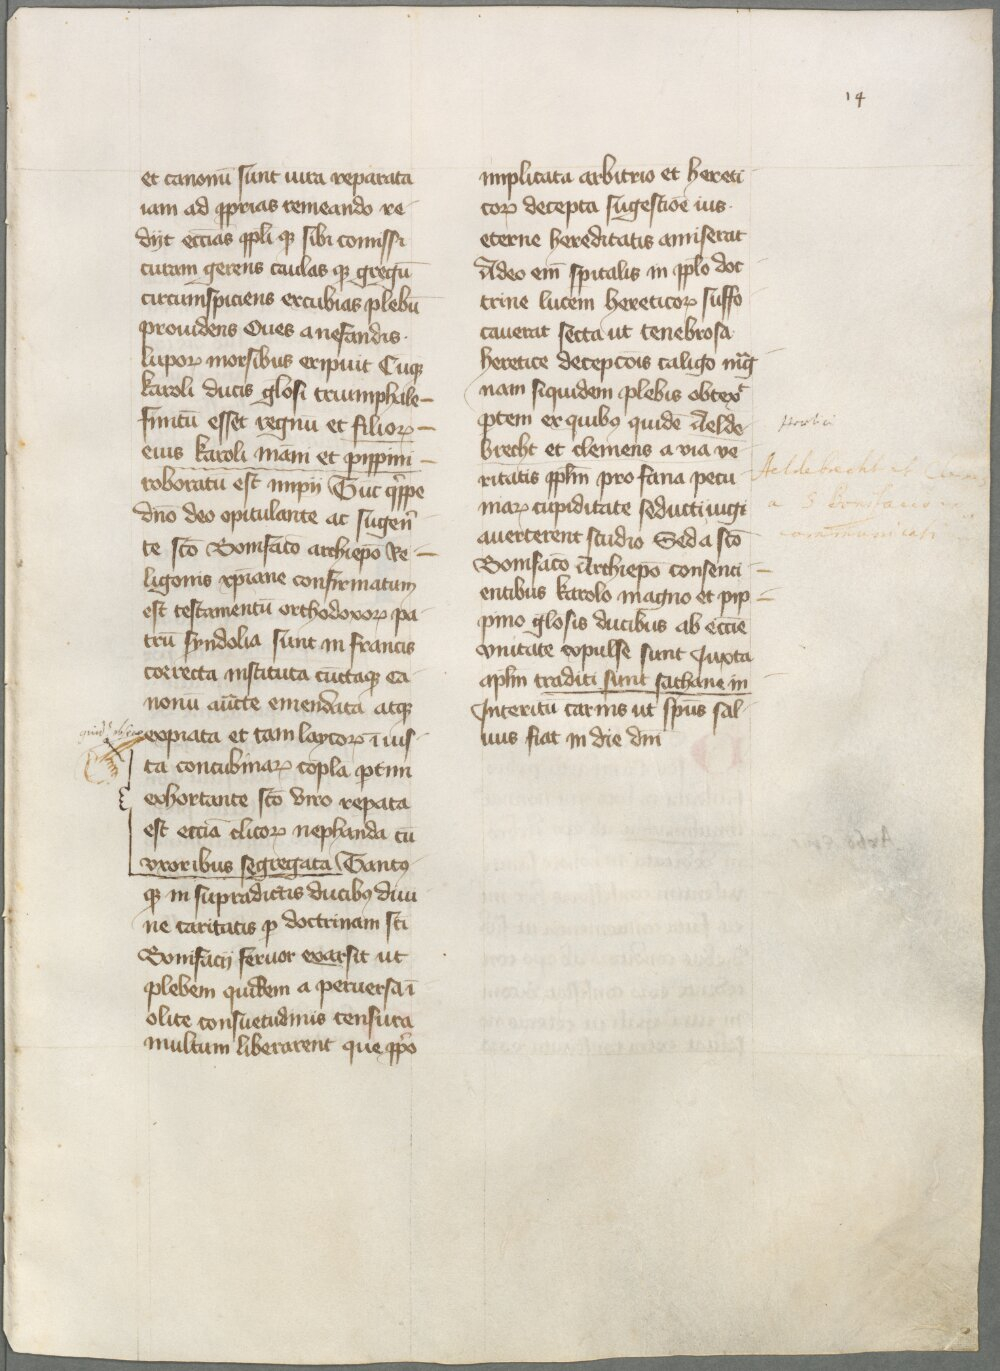 14
et canonū sunt iura reparata
iam ad ꝓprias remeando re
dijt eccīas ppli qꝫ sibi cōmissi
curam gerens caulas qꝫ gregū
circumspiciens excubias plebū
prouidens Oues a nefandis.
lupoꝝ morsibus eripuit Cūqꝫ
karoli ducis glōsi triumphale
finitū esset regnū et filioꝝ
eius karoli mani et pippini
roboratū est impij Tūc
dn̄o deo opitulante ac sugeren̄
te scō Bonifacō archiepō Re
ligonis xp̄iane confirmatum
est testamentū orthodoxoꝝ pa
trū synodolia sunt in francis
correcta instituta cūctaqꝫ ca
nonū auc̄te emendata atqꝫ
expiata et tam laycoꝝ īius
ta concubinaꝝ copla ꝑtim
exhortante scō viro reꝑata
est eccīa clicoꝝ nephanda cū
vxoribus segregata Tantꝰ
qꝫ in supradictis ducibꝰ diui
ne caritatis ꝑ doctrinam scī
Bonifacij feruor exarsit ut
plebem quidem a peruersa ī
olite consuetudinis censura
multum liberarent que ꝓpō
implicata arbitrio et hereti
coꝝ decepta sugestiōe ius.
eterne hereditatis amiserat
Adeo em̄ spp̄italis in pplo doc
trine lucem hereticoꝝ suffo
cauerat secta ut tenebrosa
heretice deceptōis caligo mgͣ
nam siquidem plebis obtexͭ
ꝑtem ex quibꝰ quidē Aelde
brecht et clemens a via ve
ritatis pplm̄ pro fana pecu
niaꝝ cupiditate seducti iugi
auerterent studio Sed a scō
Bonifacō Archiepō consenci
entibus karolo magno et pip
pino glōsis ducibus ab eccīe
vnitate expulse sunt Juxta
aplm̄ traditi sunt sathane in
Interitū carnis ut sp̄us sal
uus fiat in die dn̄i
Aeldebrecht et Clemens
a S. Bonifacio